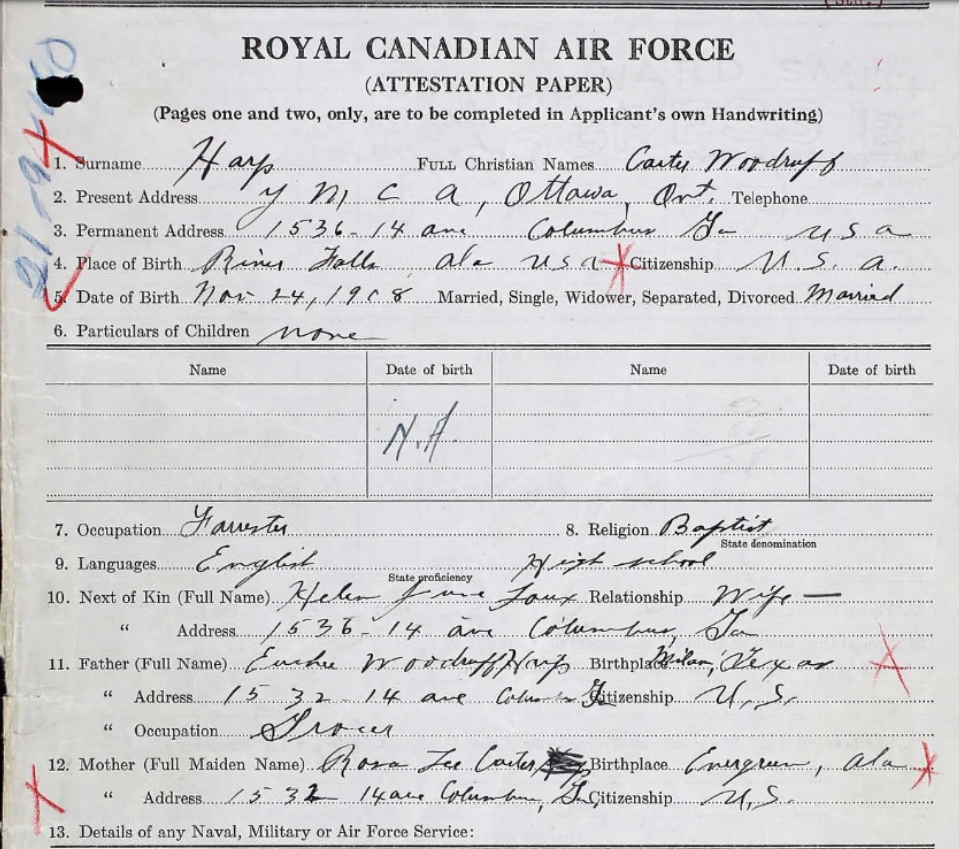 ROYAL CANADIAN AIR FORCE
(ATTESTATION PAPER)
(Pages one and two, only, are to be completed in Applicant's own Handwriting)
1. Surname Harp FULL Christian Names Carter Woodruff
2. Present Address Y M C A, Ottawa, Ont. Telephone
3. Permanent Address 1536-14 ave Columbus Ga U S a
4. Place of Birth River Falls, ala U S a Citizenship U. S. a.
5. Date of Birth Nov 24, 1908 Married, Single, Widower, Separated, Divorced Married
6. Particulars of Children none
Name Date of birth Name Date of birth
N.A.
7. Occupation 8. Religion Baptist
State denomination
9. Languages English High school
State proficiency
10. Next of Kin (Full Name) Helen June Relationship Wife —
" Address 1536-14 ave Columbus, Ga
11. Father (Full Name) Woodruff Harp Birthplace Milam, Texas
" Address 1532-14 ave Columbus Ga Citizenship U. S.
" Occupation Grocer
12. Mother (Full Maiden Name) Rosa Lee Carter Birthplace Evergreen, ala
" Address 1532 14 ave Columbus, Ga, Citizenship U. S.
13. Details of any Naval, Military or Air Force Service: